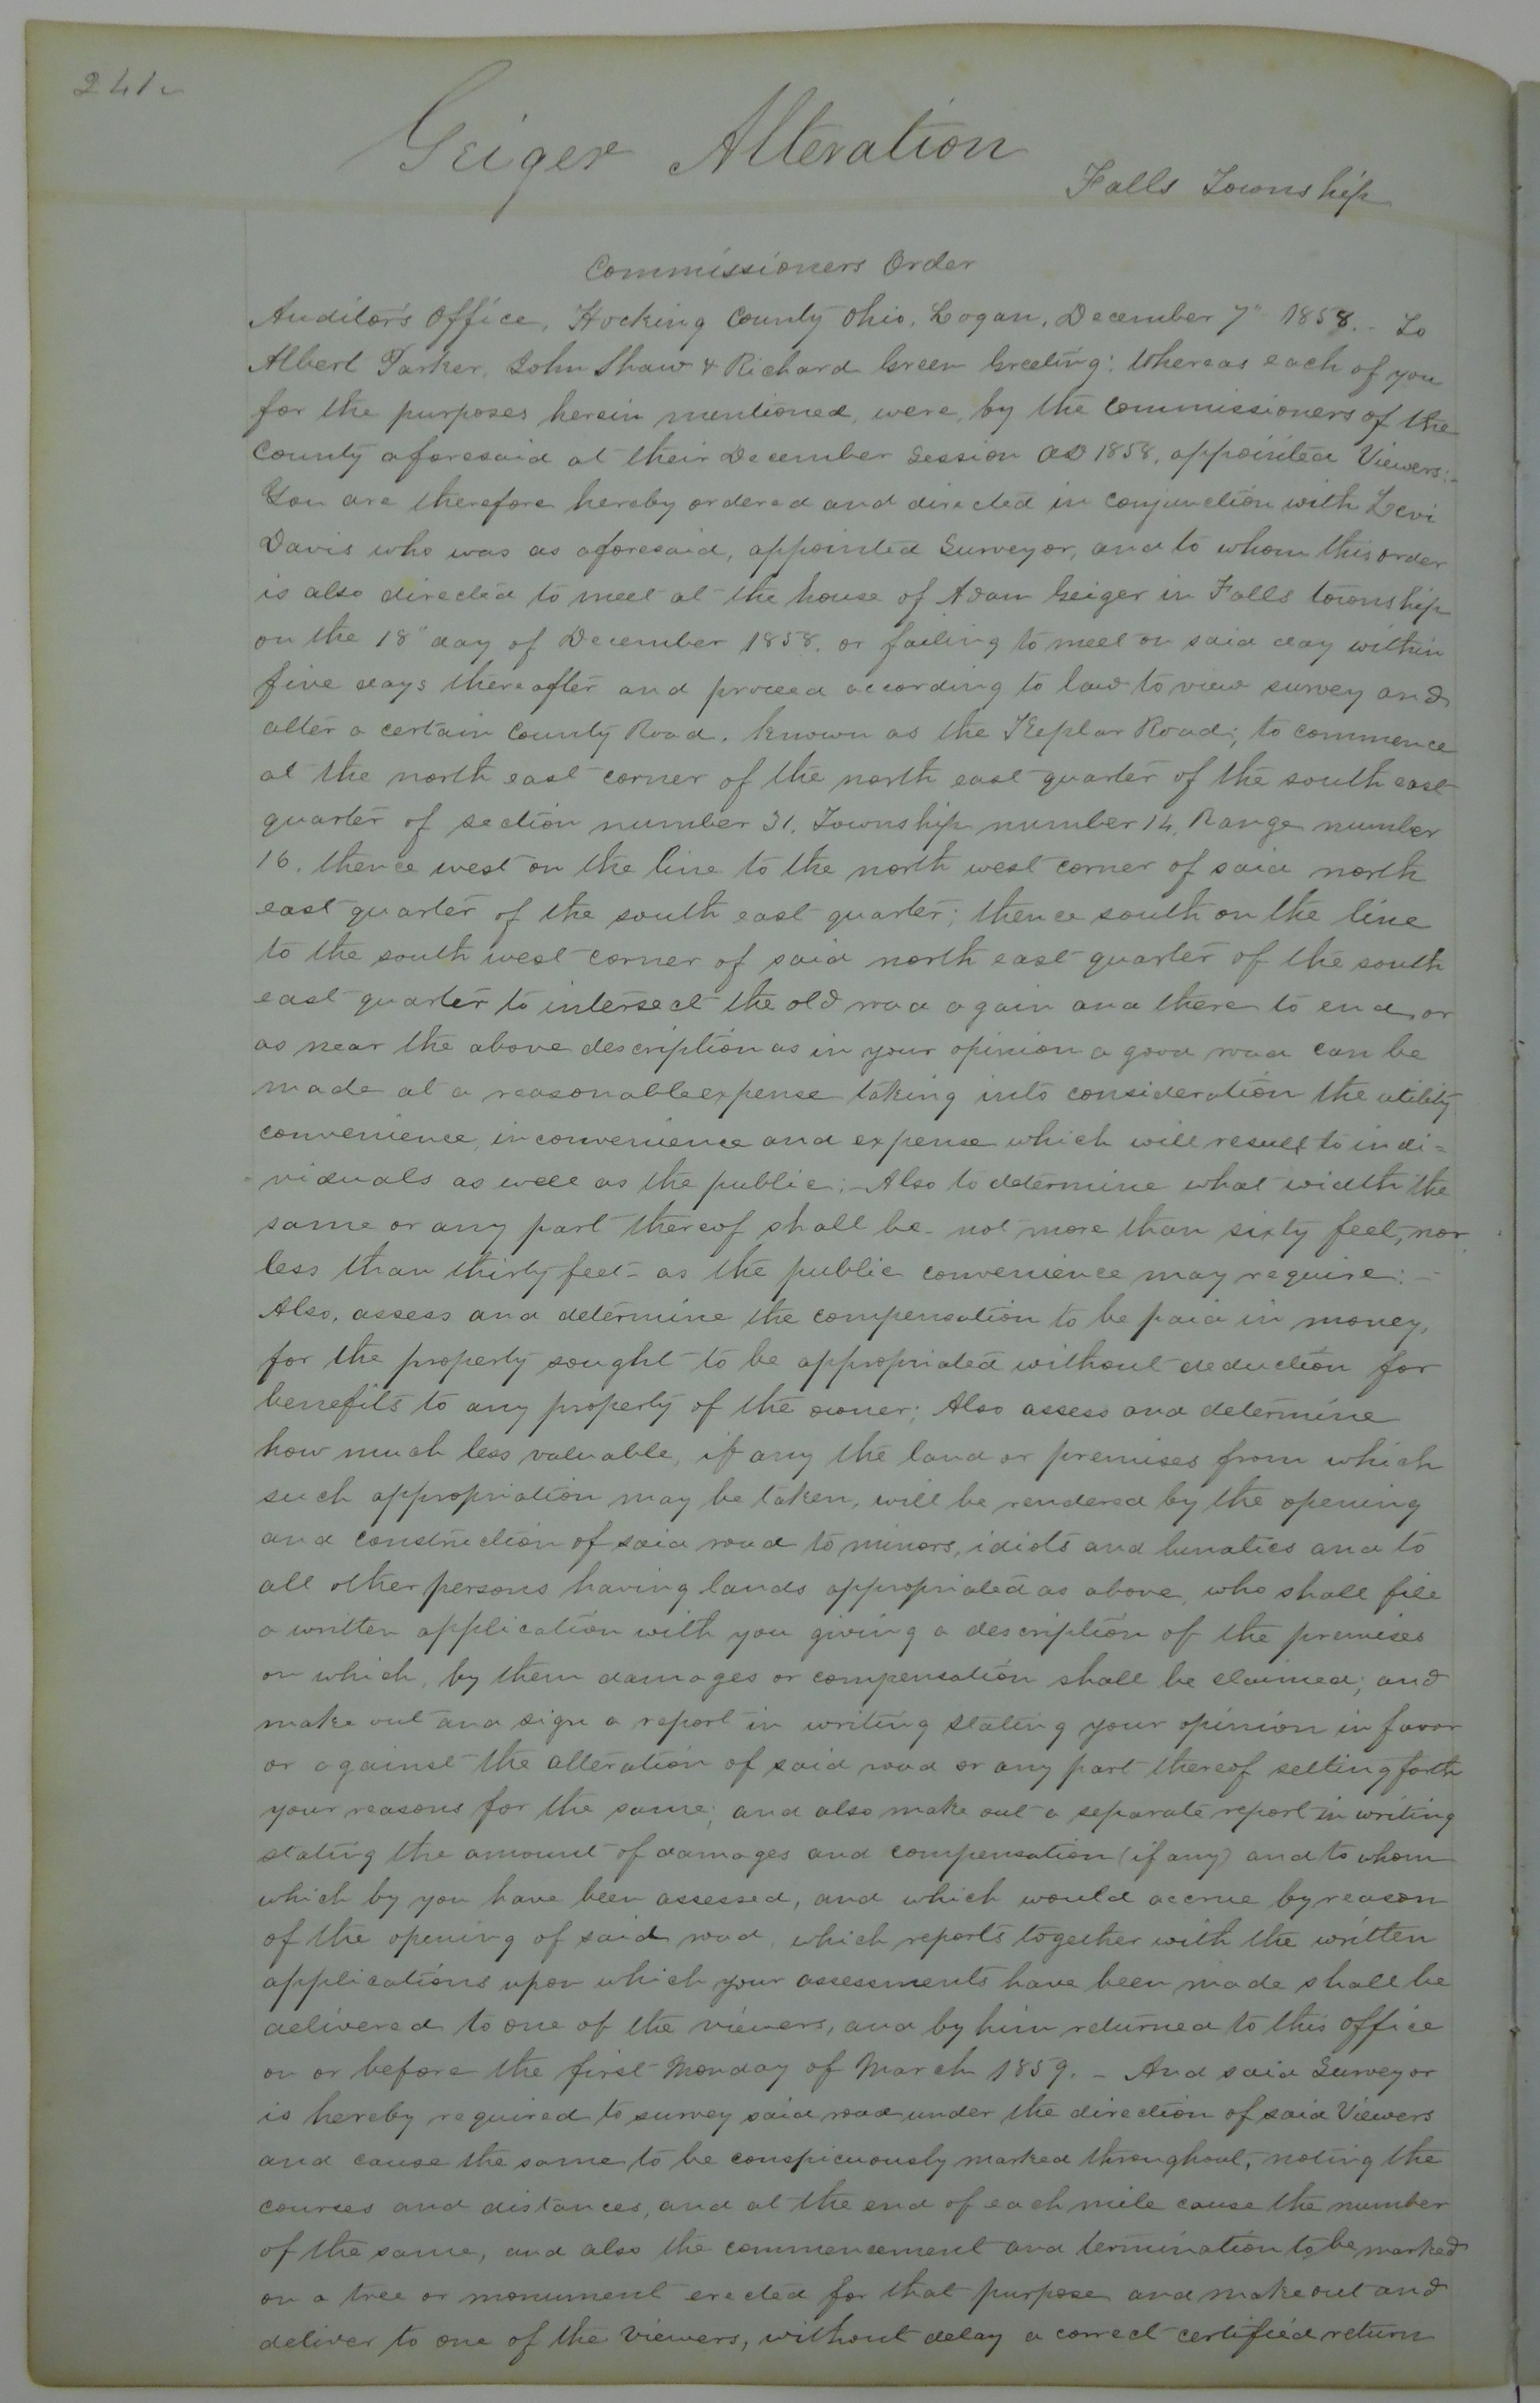 241
Geiger Alteration
Falls Township
Commissioners Order
Auditor's Office, Hocking County Ohio, Logan, December 7" 1858. - To
Albert Parker, John Shaw & Richard Green Greeting: Whereas each of you
for the purposes herein mentioned, were, by the commissioners of the
County aforesaid at their December Session AD 1858, appointed Viewers:-
You are therefore hereby ordered and directed in conjunction with Levi
Davis who was as aforesaid, appointed Surveyor, and to whom this order
is also directed to meet at the house of Adam Geiger in Falls township
on the 18" day of December 1858. or failing to meet on said day within
five days thereafter and proceed according to law to view survey and
alter a certain County Road, known as the Keplar Road; to commence
at the north east corner of the north east quarter of the south east
quarter of section number 31, Township number 14, Range number
16. thence west on the line to the north west corner of said north
east quarter of the south east quarter; thence south on the line
to the south west corner of said north east quarter of the south
east quarter to intersect the old road again and there to end, or
as near the above description as in your opinion a good road can be
made at a reasonable expense taking into consideration the utility
convenience, inconvenience and expense which will result to indi=
viduals as well as the public:- Also to determine what width the
same or any part thereof shall be - not more than sixty feet, nor
less than thirty feet - as the public convenience may require: -
Also, assess and determine the compensation to be paid in money,
for the property sought to be appropriated without deduction for
benefits to any property of the owner; Also assess and determine
how much less valuable, if any the land or premises from which
such appropriation may be taken, will be rendered by the opening
and construction of said road to minors, idiots and lunatics and to
all other persons having lands appropriated as above, who shall file
a written application with you giving a description of the premises
on which, by them damages or compensation shall be claimed; and
make out and sign a report in writing stating your opinion in favor
or against the alteration of said road or any part thereof setting forth
your reasons for the same; and also make out a separate report in writing
stating the amount of damages and compensation (if any) and to whom
which by you have been assessed, and which would accrue by reason
of the opening of said road, which reports together with the written
applications upon which your assessments have been made shall be
delivered to one of the viewers, and by him returned to this office
on or before the first Monday of March 1859. - And said Surveyor
is hereby required to survey said road under the direction of said Viewers
and cause the same to be conspicuously marked throughout, noting the
courses and distances, and at the end of each mile cause the number
of the same, and also the commencement and termination to be marked
on a tree or monument erected for that purpose and make out and
deliver to one of the Viewers, without delay a correct certified return